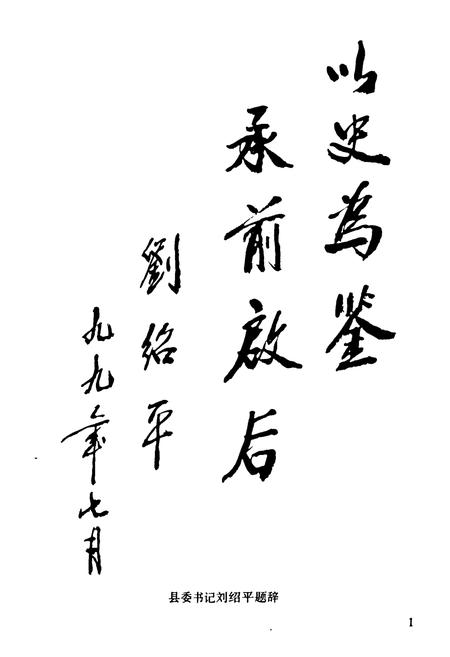 以史为鉴
承前啟后
劉绍平
九九年七月
县委书记刘绍平题辞
1